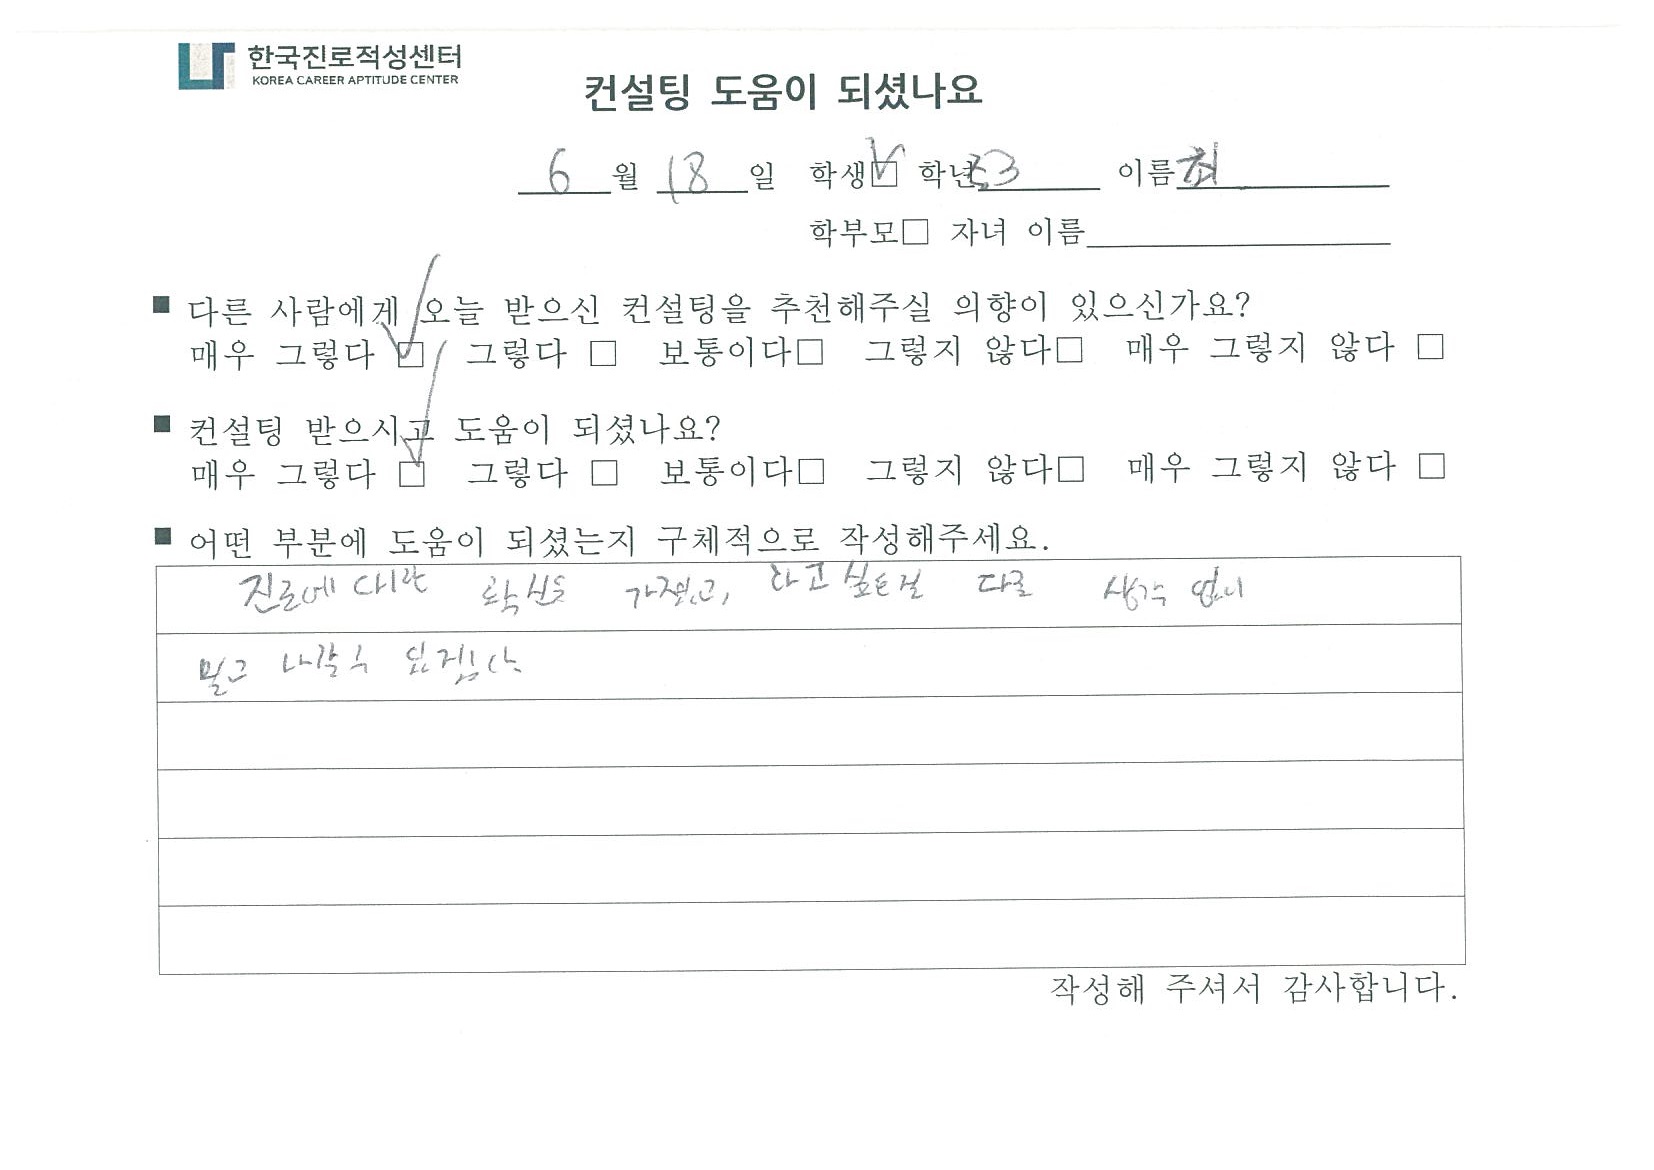 한국진로적성센터
KOREA CAREER APTITUDE CENTER
컨설팅 도움이 되셨나요
6 월 18 일 학생☑ 학년 3 이름 최
학부모□ 자녀 이름
■ 다른 사람에게 오늘 받으신 컨설팅을 추천해주실 의향이 있으신가요?
매우 그렇다 ☑ 그렇다 □ 보통이다□ 그렇지 않다□ 매우 그렇지 않다 □
■ 컨설팅 받으시고 도움이 되셨나요?
매우 그렇다 ☑ 그렇다 □ 보통이다□ 그렇지 않다□ 매우 그렇지 않다 □
■ 어떤 부분에 도움이 되셨는지 구체적으로 작성해주세요.
진로에 대한 확신을 가졌고, 하고 싶은걸 다른 생각 없이
믿고 나갈 수 있겠습니다
작성해 주셔서 감사합니다.